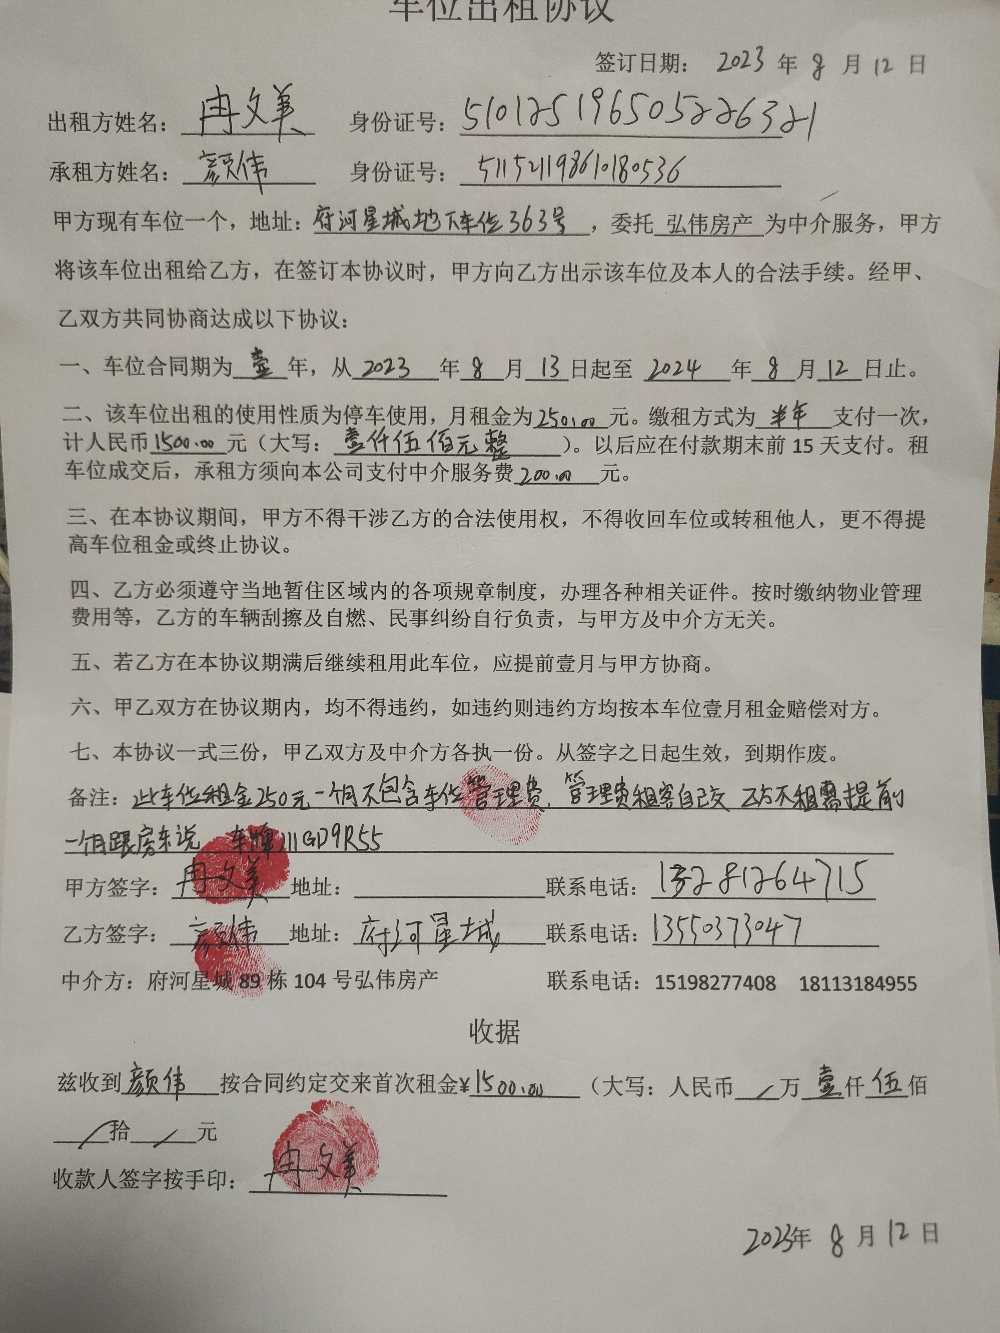 车位出租协议
签订日期： 2023 年 8 月 12 日
出租方姓名： 冉文美 身份证号： 510125196505226321
承租方姓名： 颜伟 身份证号： 511521198610180536
甲方现有车位一个，地址：府河星城地下车位363号，委托 弘伟房产 为中介服务，甲方
将该车位出租给乙方，在签订本协议时，甲方向乙方出示该车位及本人的合法手续。经甲、
乙双方共同协商达成以下协议：
一、车位合同期为 壹 年，从 2023 年 8 月 13 日起至 2024 年 8 月 12 日止。
二、该车位出租的使用性质为停车使用，月租金为250.00元。缴租方式为 半年 支付一次，
计人民币1500.00元（大写： 壹仟伍佰元整 ）。以后应在付款期末前 15 天支付。租
车位成交后，承租方须向本公司支付中介服务费200.00元。
三、在本协议期间，甲方不得干涉乙方的合法使用权，不得收回车位或转租他人，更不得提
高车位租金或终止协议。
四、乙方必须遵守当地暂住区域内的各项规章制度，办理各种相关证件。按时缴纳物业管理
费用等，乙方的车辆刮擦及自燃、民事纠纷自行负责，与甲方及中介方无关。
五、若乙方在本协议期满后继续租用此车位，应提前壹月与甲方协商。
六、甲乙双方在协议期内，均不得违约，如违约则违约方均按本车位壹月租金赔偿对方。
七、本协议一式三份，甲乙双方及中介方各执一份。从签字之日起生效，到期作废。
备注：此车位租金250元一个月不包含车位管理费，管理费租客自己交 乙方不租需提前
一个月跟房东说 车牌川GD9R55
甲方签字： 冉文美 地址： 联系电话： 13281264715
乙方签字： 颜伟 地址： 府河星城 联系电话：13550373047
中介方：府河星城 89 栋 104 号弘伟房产 联系电话：15198277408 18113184955
收据
兹收到颜伟 按合同约定交来首次租金¥1500.00 （大写：人民币 / 万 壹 仟 伍 佰
/ 拾 / 元
收款人签字按手印： 冉文美
2023年 8 月 12 日